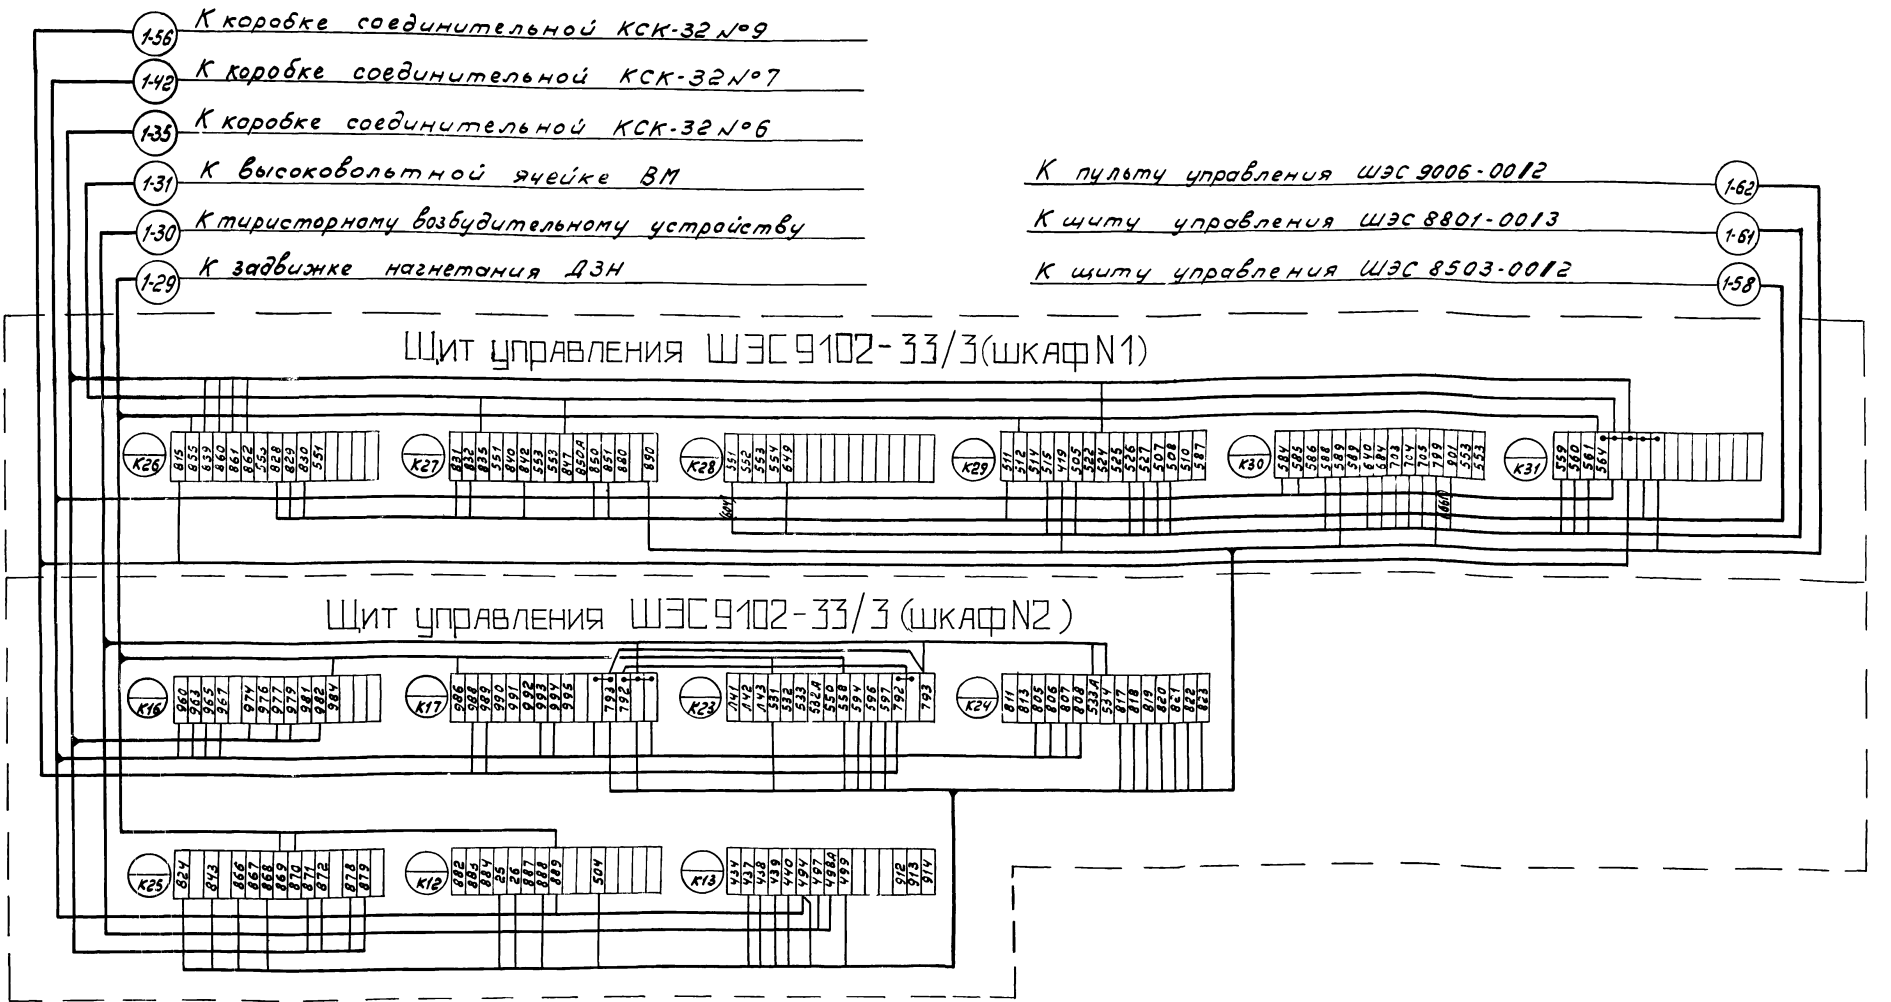 1-56 К коробке соединительной КСК-32 №9
1-42 К коробке соединительной КСК-32 №7
1-35 К коробке соединительной КСК-32 №6
1-31 К высоковольтной ячейке ВМ
1-30 К тиристорному возбудительному устройству
1-29 К задвижке нагнетания ДЗН
К пульту управления ШЭС 9006-0012 1-62
К щиту управления ШЭС 8801-0013 1-61
К щиту управления ШЭС 8503-0012 1-58
Щит управления ШЭС 9102-33/3 (шкаф N1)
К26 815 835 859 860 861 862 553 828 829 830 551
К27 831 832 835 551 840 842 553 553 847 850А 850 851 880 890
К28 551 552 553 554 649
К29 511 512 514 515 419 505 522 524 525 526 527 507 508 510 587
К30 584 585 586 588 589 589 640 684 703 704 705 799 901 553 553
К31 559 560 561 564
Щит управления ШЭС 9102-33/3 (шкаф N2)
К16 960 963 965 967 974 976 977 979 981 982 984
К17 986 988 989 990 991 992 993 994 995 793 792
К23 Л41 Л42 Л43 531 532 533 532А 550 558 594 596 597 792 793
К24 811 813 805 806 807 808 533А 534 817 818 819 820 821 822 823
К25 824 843 866 867 868 869 870 871 872 878 879
К12 882 883 884 25 26 887 888 889 504
К13 434 437 438 439 440 494 497 498А 499 912 913 914